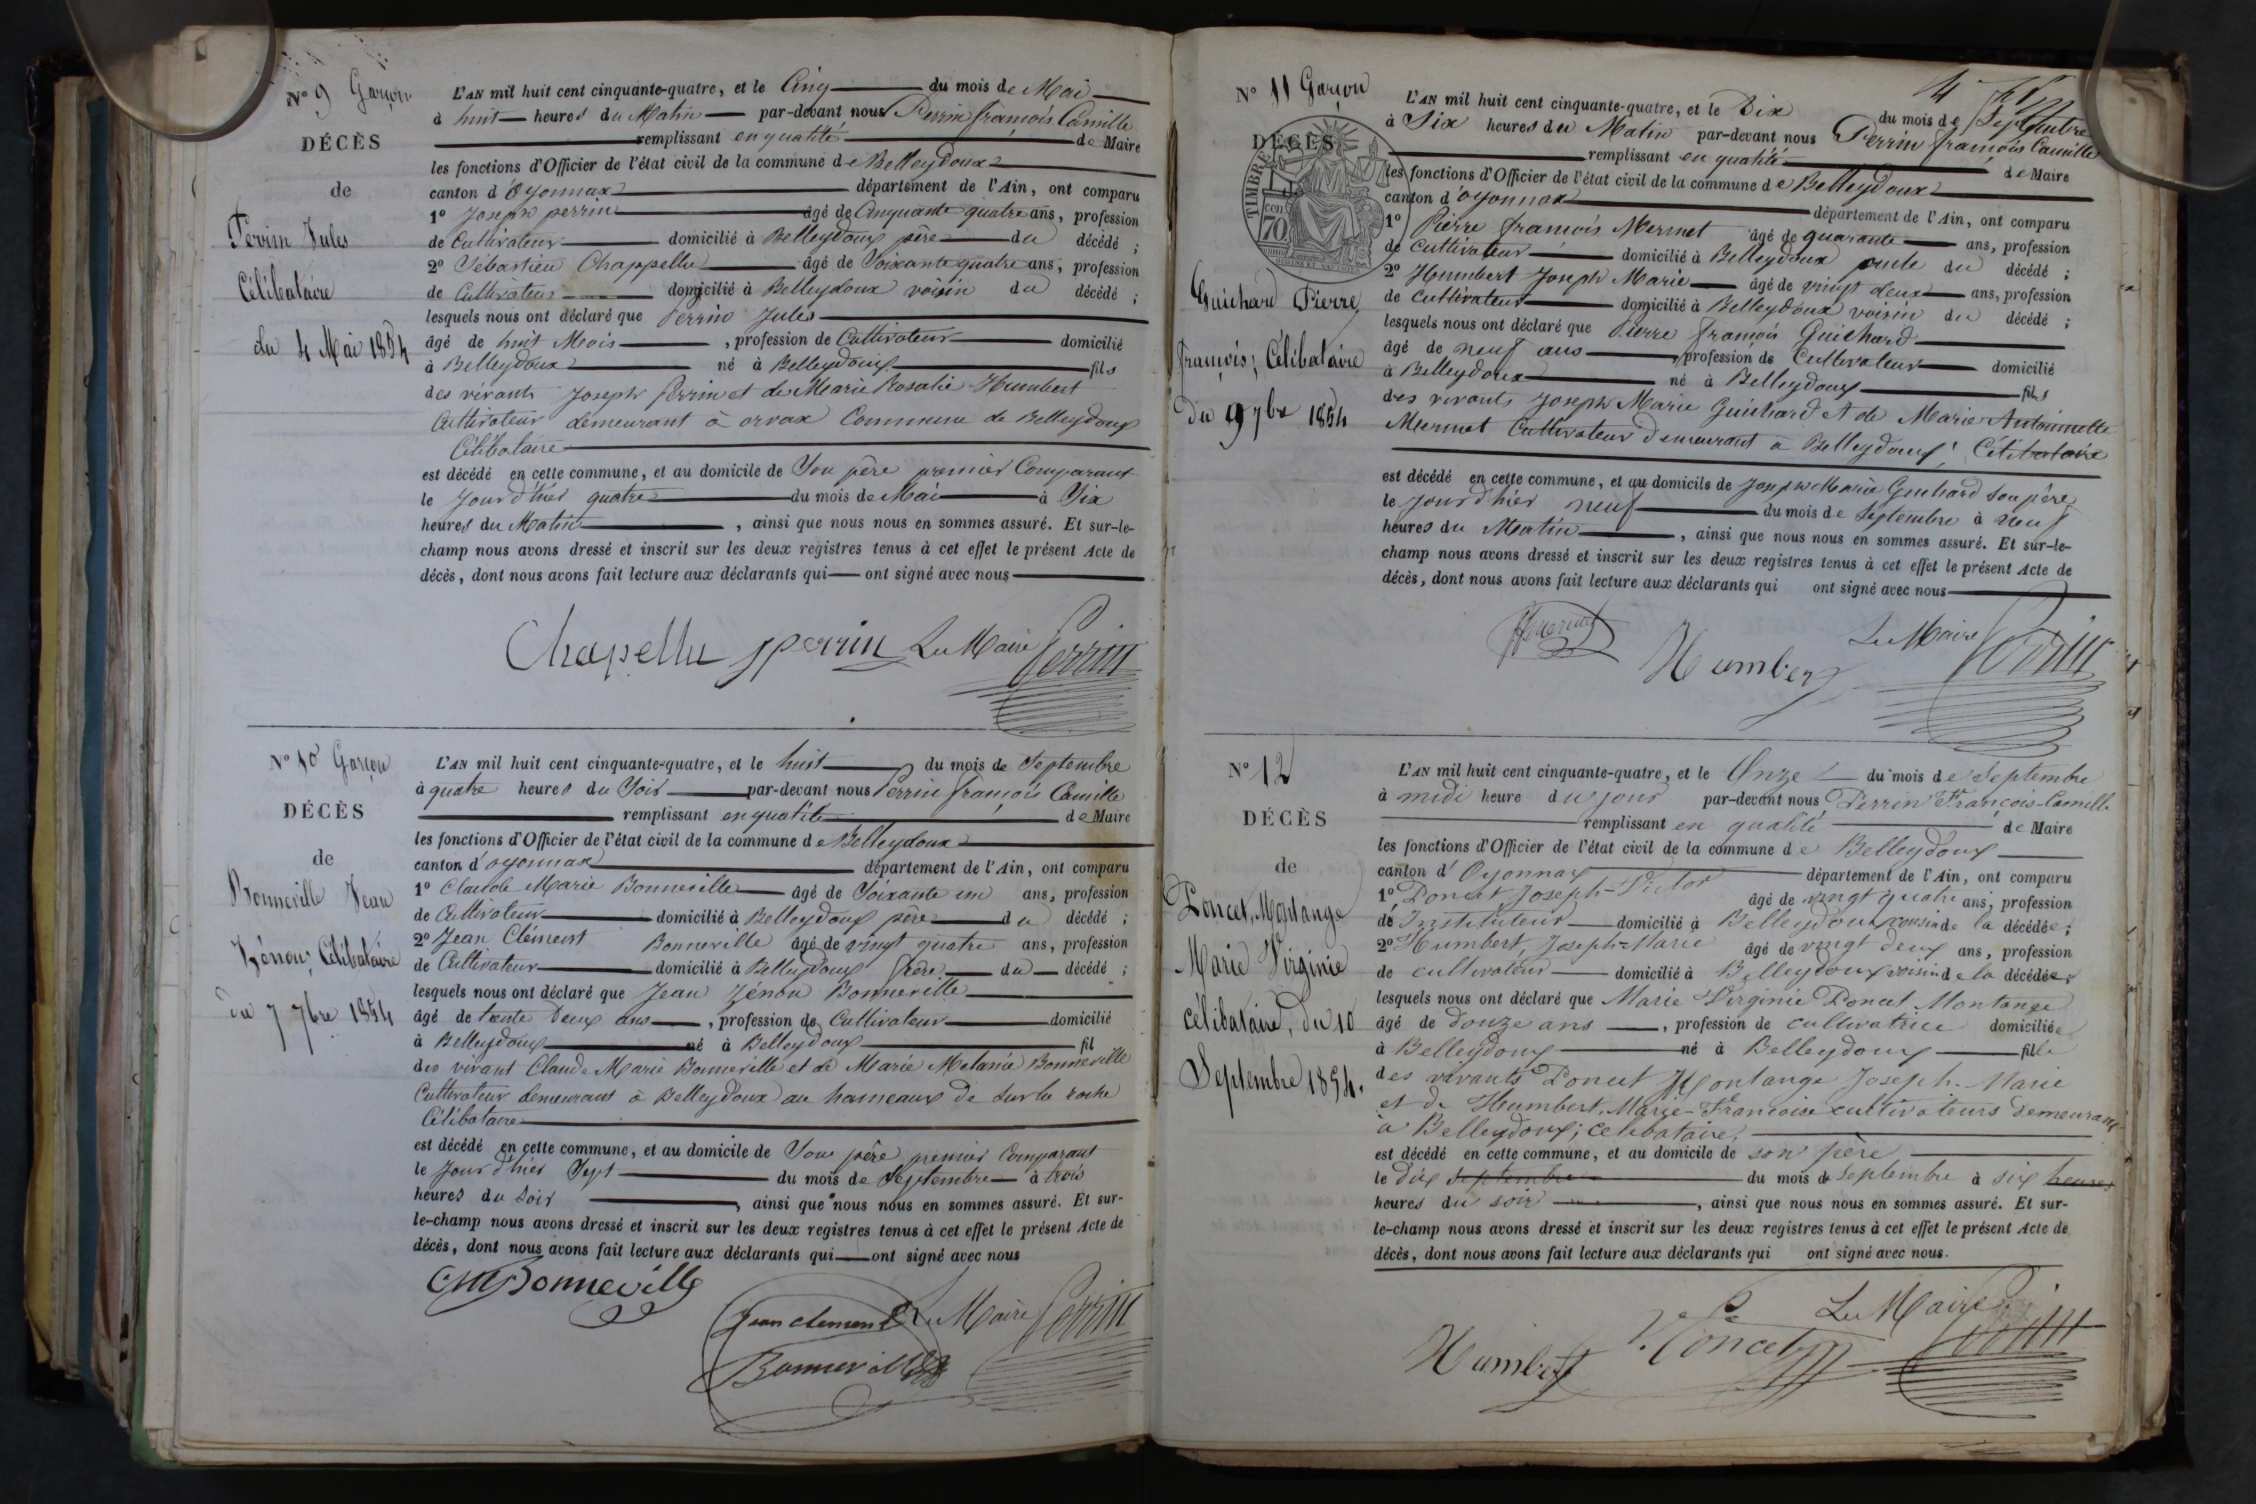 N° 9 Garçon
DÉCÈS
de
Perrin Jules
Célibataire
du 4 Mai 1854
L'AN mil huit cent cinquante-quatre, et le Cinq du mois de Mai
à huit heures du Matin par-devant nous Perrin françois Camille
remplissant en qualité de Maire
les fonctions d'Officier de l'état civil de la commune de Belleydoux
canton d'Oyonnax département de l'Ain, ont comparu
1° Joseph perrin âgé de Cinquante quatre ans, profession
de Cultivateur domicilié à Belleydoux père du décédé ;
2° Sébastien Chappellu âgé de Soixante quatre ans, profession
de Cultivateur domicilié à Belleydoux voisin du décédé ;
lesquels nous ont déclaré que Perrin Jules
âgé de huit Mois , profession de Cultivateur domicilié
à Belleydoux né à Belleydoux fils
des vivants Joseph Perrin et de Marie Rosalie Humbert
Cultivateur demeurant à orvax Commune de Belleydoux
Célibataire
est décédé en cette commune, et au domicile de Son père premier Comparant
le Jour d'hier quatre du mois de Mai à Six
heures du Matin , ainsi que nous nous en sommes assuré. Et sur-le-
champ nous avons dressé et inscrit sur les deux registres tenus à cet effet le présent Acte de
décès, dont nous avons fait lecture aux déclarants qui ont signé avec nous
Chapellu J perrin Le Maire Perrin
N° 10 Garçon
DÉCÈS
de
Bonneville Jean
Zénon; Célibataire
du 7 7bre 1854
L'AN mil huit cent cinquante-quatre, et le huit du mois de Septembre
à quatre heures du Soir par-devant nous Perrin françois Camille
remplissant en qualité de Maire
les fonctions d'Officier de l'état civil de la commune de Belleydoux
canton d'oyonnax département de l'Ain, ont comparu
1° Claude Marie Bonneville âgé de Soixante un ans, profession
de Cultivateur domicilié à Belleydoux père du décédé ;
2° Jean Clément Bonneville âgé de vingt quatre ans, profession
de Cultivateur domicilié à Belleydoux frère du décédé ;
lesquels nous ont déclaré que Jean Zénon Bonneville
âgé de trente Deux ans , profession de Cultivateur domicilié
à Belleydoux né à Belleydoux fil
des vivant Claude Marie Bonneville et de Marie Melanie Bonneville
Cultivateur demeurant à Belleydoux au hameaux de Sur la roche
Célibataire
est décédé en cette commune, et au domicile de Son père premier Comparant
le Jour d'hier Sept du mois de Septembre à trois
heures du Soir , ainsi que nous nous en sommes assuré. Et sur-
le-champ nous avons dressé et inscrit sur les deux registres tenus à cet effet le présent Acte de
décès, dont nous avons fait lecture aux déclarants qui ont signé avec nous
CM Bonneville
Jean clement Le Maire Perrin
Bonneville
4
N° 11 Garçon
DÉCÈS
TIMBRE
70
Guichard Pierre
françois; Célibataire
du 9 7bre 1854
L'AN mil huit cent cinquante-quatre, et le Dix du mois de Septembre
à Six heures du Matin par-devant nous Perrin françois Camille
remplissant en qualité de Maire
les fonctions d'Officier de l'état civil de la commune de Belleydoux
canton d'oyonnax département de l'Ain, ont comparu
1° Pierre françois Mermet âgé de quarante ans, profession
de Cultivateur domicilié à Belleydoux oncle du décédé ;
2° Humbert Joseph Marie âgé de vingt deux ans, profession
de Cultivateur domicilié à Belleydoux voisin du décédé ;
lesquels nous ont déclaré que Pierre françois Guichard
âgé de neuf ans , profession de Cultivateur domicilié
à Belleydoux né à Belleydoux fils
des vivants Joseph Marie Guichard et de Marie Antoinette
Mermet Cultivateur Demeurant à Belleydoux; Célibataire
est décédé en cette commune, et au domicile de Joseph Marie Guichard Son père
le Jour d'hier neuf du mois de Septembre à neuf
heures du Matin , ainsi que nous nous en sommes assuré. Et sur-le-
champ nous avons dressé et inscrit sur les deux registres tenus à cet effet le présent Acte de
décès, dont nous avons fait lecture aux déclarants qui ont signé avec nous
Humbert Le Maire Perrin
N° 12
DÉCÈS
de
Poncet, Montange
Marie Virginie
célibataire, du 10
Septembre 1854.
L'AN mil huit cent cinquante-quatre, et le Onze du mois de Septembre
à midi heure du jour par-devant nous Perrin François-Camille
remplissant en qualité de Maire
les fonctions d'Officier de l'état civil de la commune de Belleydoux
canton d'Oyonnax département de l'Ain, ont comparu
1° Poncet Joseph-Victor âgé de vingt quatre ans, profession
de Instituteur domicilié à Belleydoux voisin de la décédée ;
2° Humbert, Joseph-Marie âgé de vingt deux ans, profession
de cultivateur domicilié à Belleydoux voisin de la décédée ;
lesquels nous ont déclaré que Marie Virginie Poncet Montange
âgé de douze ans , profession de cultivatrice domiciliée
à Belleydoux né à Belleydoux fille
des vivants Poncet Montange Joseph-Marie
et de Humbert, Marie-Françoise cultivateurs demeurant
à Belleydoux; célibataire,
est décédé en cette commune, et au domicile de son père
le dix septembre du mois de septembre à six heures
heures du soir , ainsi que nous nous en sommes assuré. Et sur-
le-champ nous avons dressé et inscrit sur les deux registres tenus à cet effet le présent Acte de
décès, dont nous avons fait lecture aux déclarants qui ont signé avec nous.
Humbert Poncet Le Maire Perrin